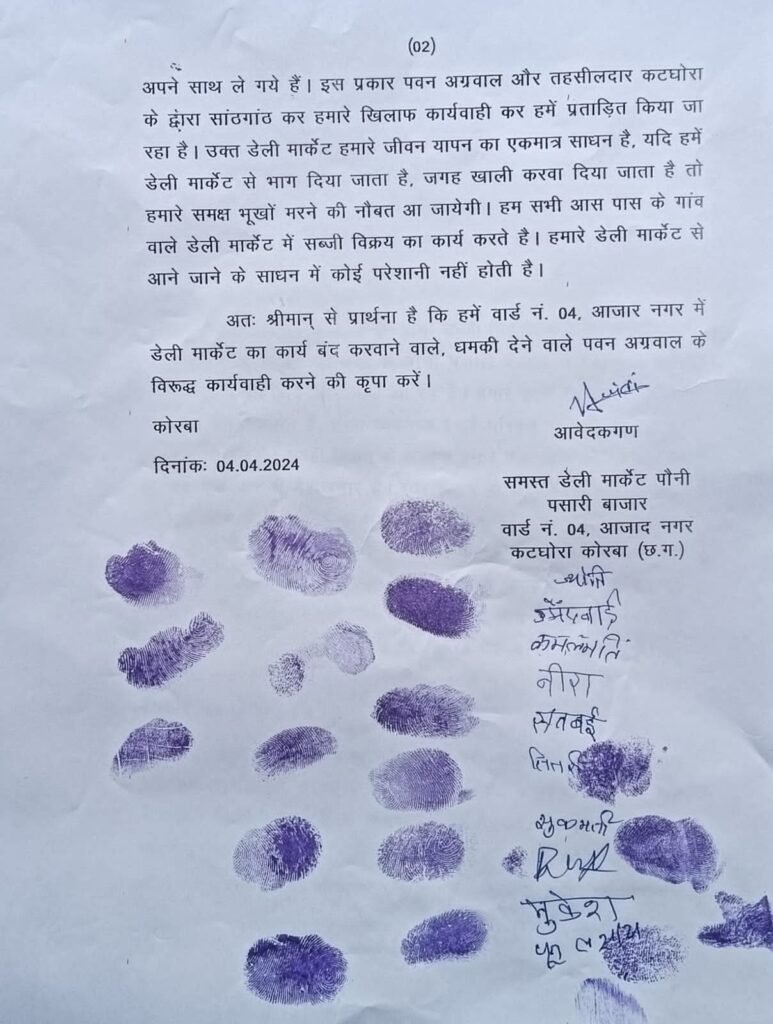 (02)
अपने साथ ले गये हैं। इस प्रकार पवन अग्रवाल और तहसीलदार कटघोरा
के द्वारा सांठगांठ कर हमारे खिलाफ कार्यवाही कर हमें प्रताड़ित किया जा
रहा है। उक्त डेली मार्केट हमारे जीवन यापन का एकमात्र साधन है, यदि हमें
डेली मार्केट से भाग दिया जाता है, जगह खाली करवा दिया जाता है तो
हमारे समक्ष भूखों मरने की नौबत आ जायेगी। हम सभी आस पास के गांव
वाले डेली मार्केट में सब्जी विक्रय का कार्य करते है। हमारे डेली मार्केट से
आने जाने के साधन में कोई परेशानी नहीं होती है।
अतः श्रीमान् से प्रार्थना है कि हमें वार्ड नं. 04, आजार नगर में
डेली मार्केट का कार्य बंद करवाने वाले, धमकी देने वाले पवन अग्रवाल के
विरूद्ध कार्यवाही करने की कृपा करें।
कोरबा
आवेदकगण
दिनांकः 04.04.2024
समस्त डेली मार्केट पौनी
पसारी बाजार
वार्ड नं. 04, आजाद नगर
कटघोरा कोरबा (छ.ग.)
नीरा
सतबई
मुकेश